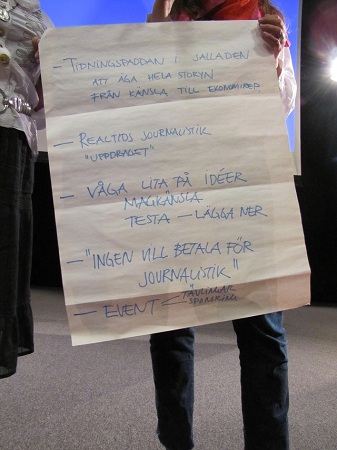 - TIDNINGSPADDAN I SALLADEN
ATT ÄGA HELA STORYN
FRÅN KÄNSLA TILL EKONOMIREP
- REALTIDS JOURNALISTIK
"UPPDRAGET"
- VÅGA LITA PÅ IDÉER
MAGKÄNSLA
TESTA - LÄGGA NER
- "INGEN VILL BETALA FÖR
JOURNALISTIK"
- EVENT < TÄVLINGAR
SPONRING